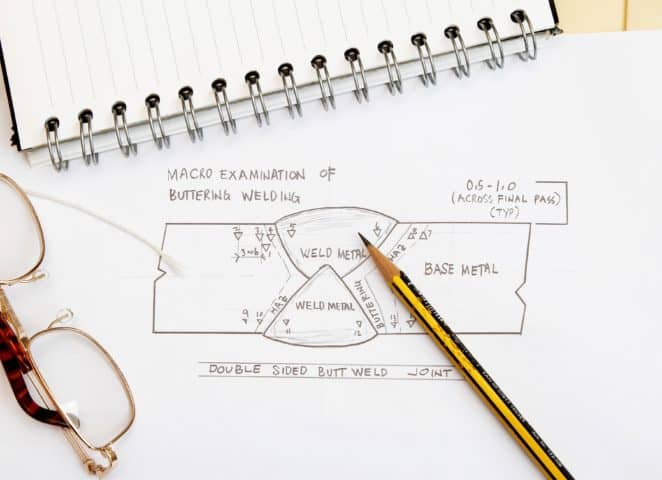 MACRO EXAMINATION OF
BUTTERING WELDING
0.5-1.0
(ACROSS FINAL PASS)
(TYP)
WELD METAL
HAZ
BASE METAL
HAZ
WELD METAL
BUTTERING
9
10
11
12
DOUBLE SIDED BUTT WELD JOINT